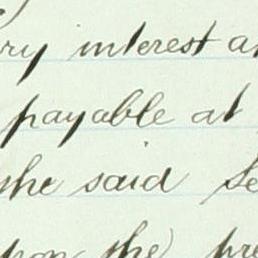 ry interest a
payable at
the said Se
pon the pre